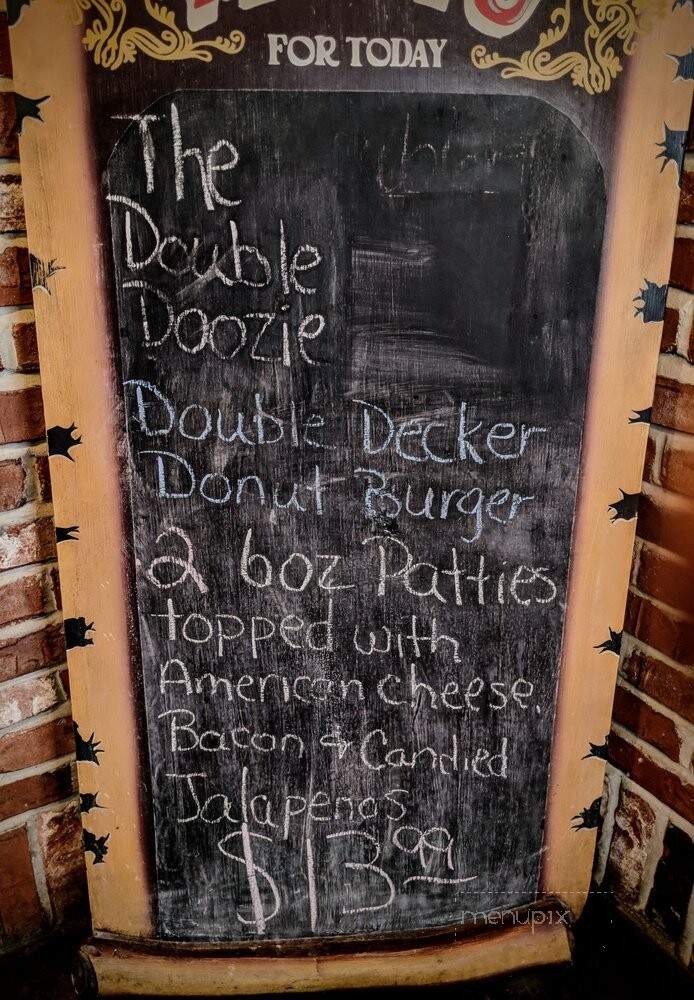 FOR TODAY
The
Double
Doozie
Double Decker
Donut Burger
2 6oz Patties
topped with
American cheese,
Bacon & Candied
Jalapenos
$13.99
menupix